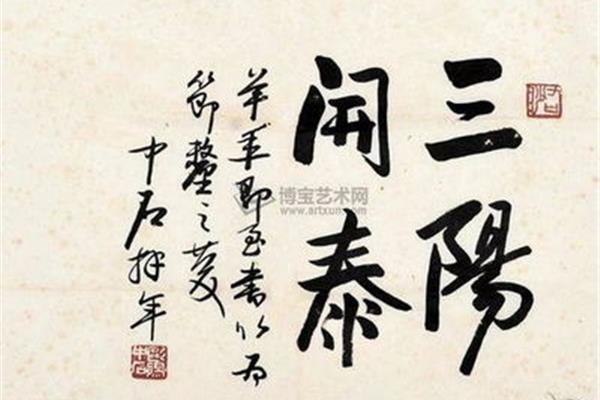 三陽
開泰
羊年即至書以为
節釐之慶
中石拜年
博宝艺术网
www.artxun.com